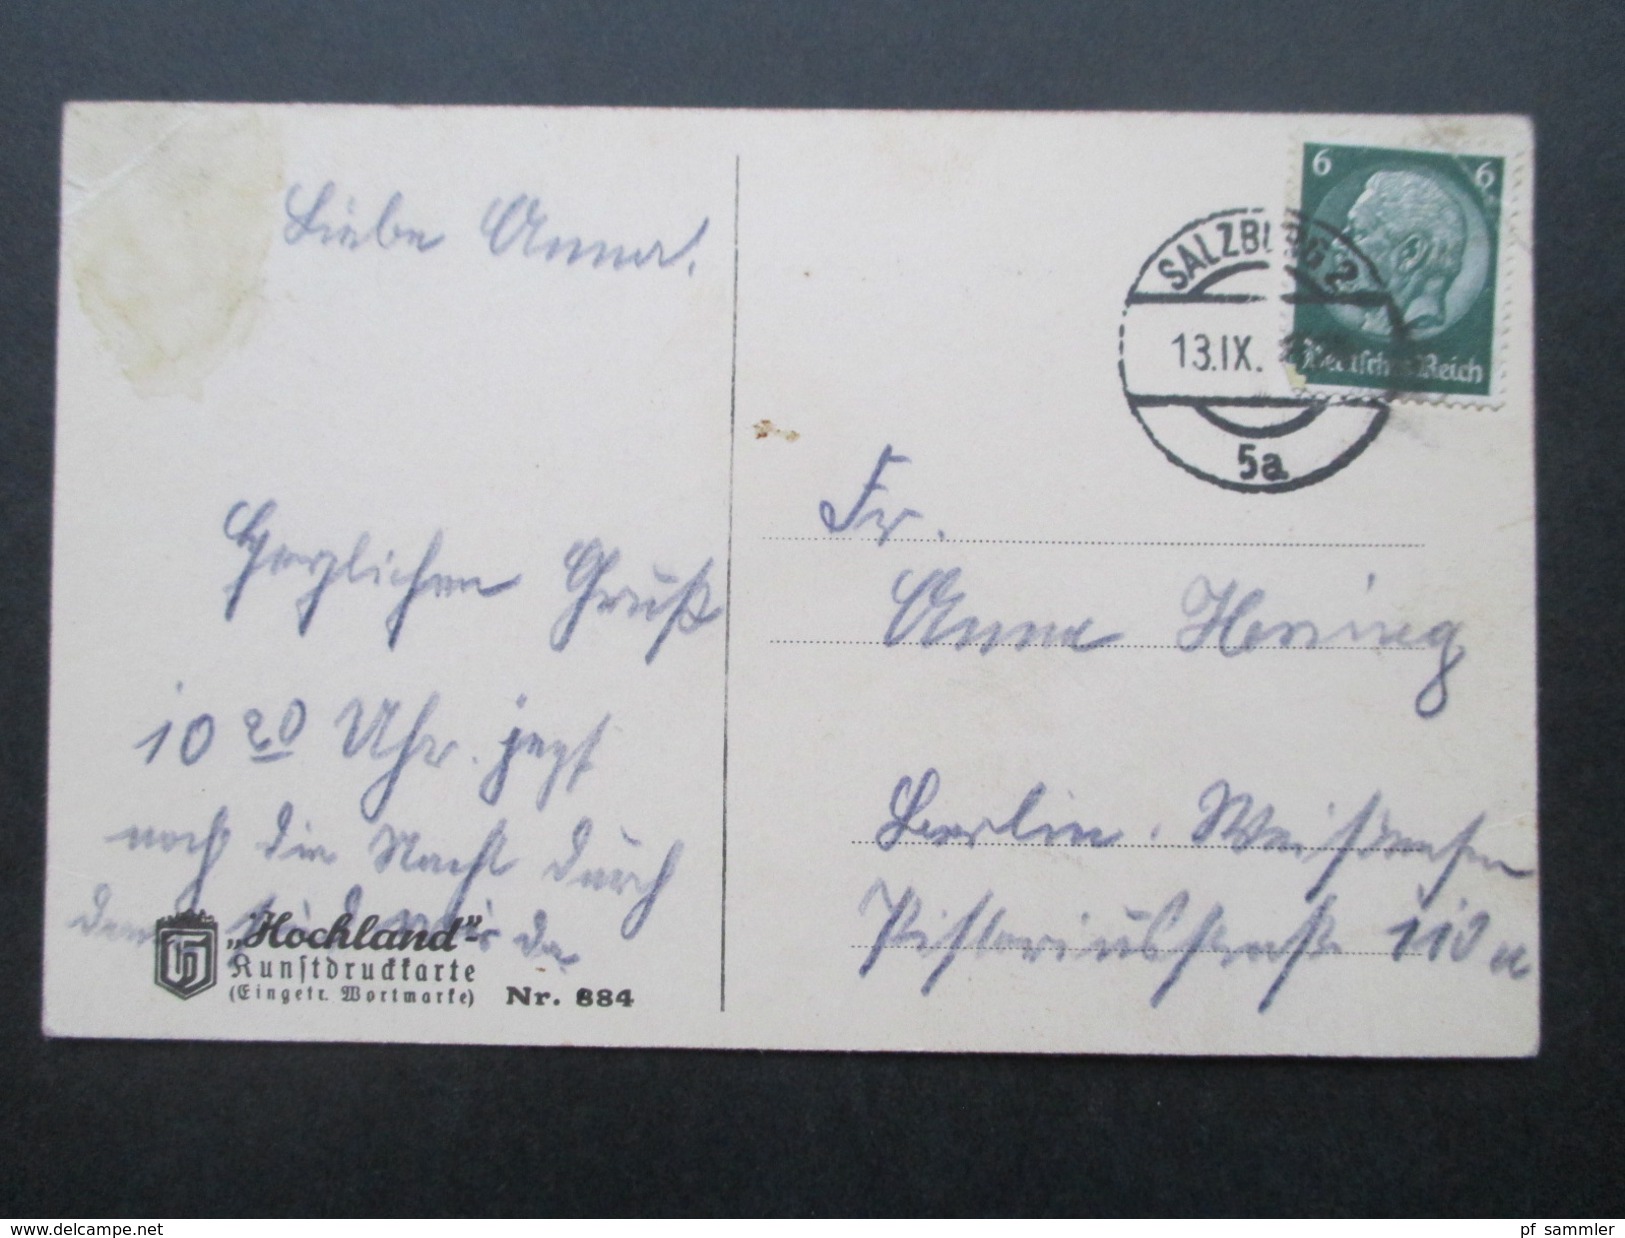 Liebe Anna!
Herzlichen Gruß
10 20 Uhr. jetzt
noch die Nacht durch
dann sind wir da
„Hochland"-
Kunstdruckkarte
(Eingetr. Wortmarke) Nr. 884
6 6
Deutsches Reich
SALZBURG 2
13.IX.
5a
Fr.
Anna Hering
Berlin. Weißensee
Pistoriusstraße 110 a
www.delcampe.net
pf_sammler